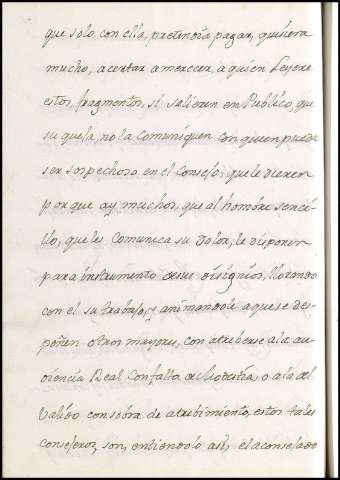 que solo con ella, pretendia pagar, quisiera
mucho, acertar a merecer, a quien Leyere
estos fragmentos, si salieren en Publico, que
su quexa, no la Comuniquen con quien pueda
ser sospechoso en el Consejo, que le dieren
por que ay muchos, que al hombre sencí-
llo, que les Comunica su dolor, le disponen
para instrumento desus designios, llorando
con el su trabajo, y animandole aquese des-
peñen otros mayores, con atreberse a la au-
diencia Real Con falta de Modestia, o a la del
Valido con sobra de atrebimiento, estos tales
consejeros, son, entiendolo asi, el aconsejado